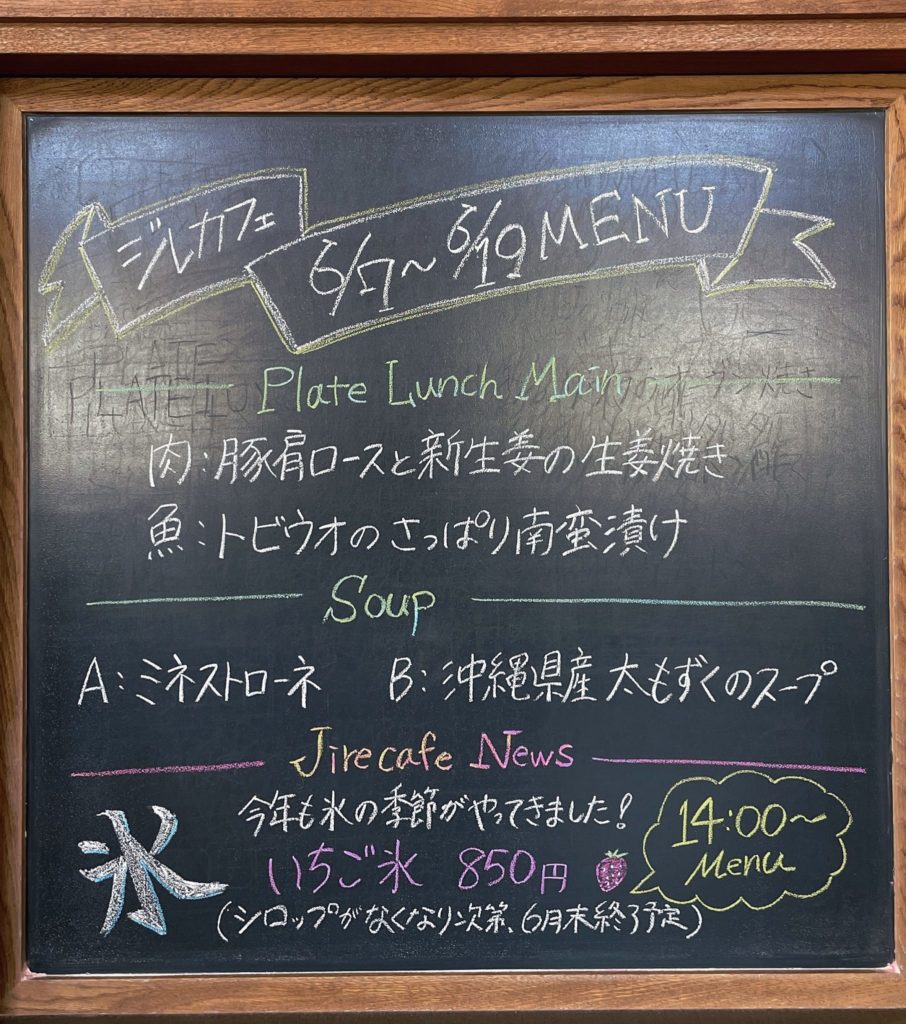 ジルカフェ 6/17～6/19 MENU
Plate Lunch Main
肉:豚肩ロースと新生姜の生姜焼き
魚:トビウオのさっぱり南蛮漬け
Soup
A:ミネストローネ B:沖縄県産太もずくのスープ
Jirecafe News
今年も氷の季節がやってきました!
氷
いちご氷 850円
14:00～
Menu
(シロップがなくなり次第、6月末終了予定)